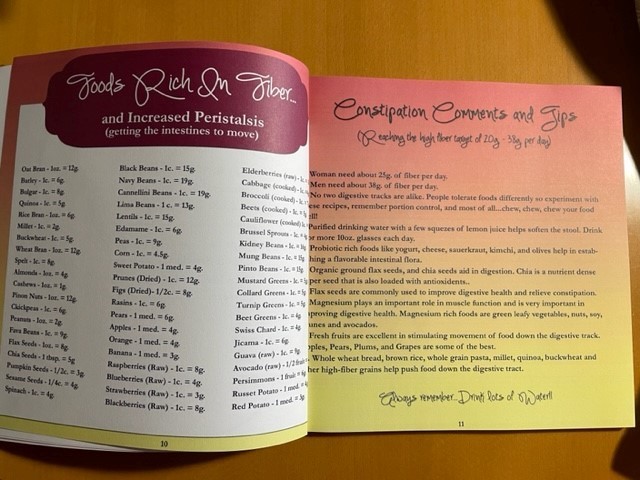 Foods Rich In Fiber...
and Increased Peristalsis
(getting the intestines to move)
Oat Bran - 1oz. = 12g.
Barley - 1c. = 6g.
Bulgar - 1c. = 8g.
Quinoa - 1c. = 5g.
Rice Bran - 1oz. = 6g.
Millet - 1c. = 2g.
Buckwheat - 1c. = 5g.
Wheat Bran - 1oz. = 12g.
Spelt - 1c. = 8g.
Almonds - 1oz. = 4g.
Cashews - 1oz. = 1g.
Pinon Nuts - 1oz. = 12g.
Chickpeas - 1c. = 6g.
Peanuts - 1oz. = 2g.
Fava Beans - 1c. = 9g.
Flax Seeds - 1oz. = 8g.
Chia Seeds - 1 tbsp. = 5g
Pumpkin Seeds - 1/2c. = 3g.
Sesame Seeds - 1/4c. = 4g.
Spinach - 1c. = 4g.
Black Beans - 1c. = 15g.
Navy Beans - 1c. = 19g.
Cannellini Beans - 1c. = 19g.
Lima Beans - 1 c. = 13g.
Lentils - 1c. = 15g.
Edamame - 1c. = 6g.
Peas - 1c. = 9g.
Corn - 1c. = 4.5g.
Sweet Potato - 1 med. = 4g.
Prunes (Dried) - 1c. = 12g.
Figs (Dried)- 1/2c. = 8g.
Rasins - 1c. = 6g.
Pears - 1 med. = 6g.
Apples - 1 med. = 4g.
Orange - 1 med. = 4g.
Banana - 1 med. = 3g.
Raspberries (Raw) - 1c. = 8g.
Blueberries (Raw) - 1c. = 4g.
Strawberries (Raw) - 1c. = 3g.
Blackberries (Raw) - 1c. = 8g.
Elderberries (raw) - 1c.
Cabbage (cooked) - 1c.
Broccoli (cooked) - 1c.
Beets (cooked) - 1c.
Cauliflower (cooked)
Brussel Sprouts - 1c.
Kidney Beans - 1c. =
Mung Beans - 1c. =
Pinto Beans - 1c. =
Mustard Greens - 1c.
Collard Greens - 1c.
Turnip Greens - 1c. =
Beet Greens - 1c. = 4g
Swiss Chard - 1c. = 4g.
Jicama - 1c. = 6g.
Guava (raw) - 1c. = 9g.
Avocado (raw) - 1/2 fruit
Persinmmons - 1 fruit =
Russet Potato - 1 med. =
Red Potato - 1 med. = 3g.
10
Constipation Comments and Tips
(Reaching the high fiber target of 20g - 38g per day)
Woman need about 25g. of fiber per day.
Men need about 38g. of fiber per day.
No two digestive tracks are alike. People tolerate foods differently so experiment with
ese recipes, remember portion control, and most of all...chew, chew, chew your food
ell!
Purified drinking water with a few squeezes of lemon juice helps soften the stool. Drink
or more 10oz. glasses each day.
Probiotic rich foods like yogurt, cheese, sauerkraut, kimchi, and olives help in estab-
hing a flavorable intestinal flora.
Organic ground flax seeds, and chia seeds aid in digestion. Chia is a nutrient dense
per seed that is also loaded with antioxidents..
Flax seeds are commonly used to improve digestive health and relieve constipation.
Magnesium plays an important role in muscle function and is very important in
proving digestive health. Magnesium rich foods are green leafy vegetables, nuts, soy,
unes and avocados.
Fresh fruits are excellent in stimulating movement of food down the digestive track.
pples, Pears, Plums, and Grapes are some of the best.
. Whole wheat bread, brown rice, whole grain pasta, millet, quinoa, buckwheat and
her high-fiber grains help push food down the digestive tract.
Always remember...Drink lots of Water!!
11